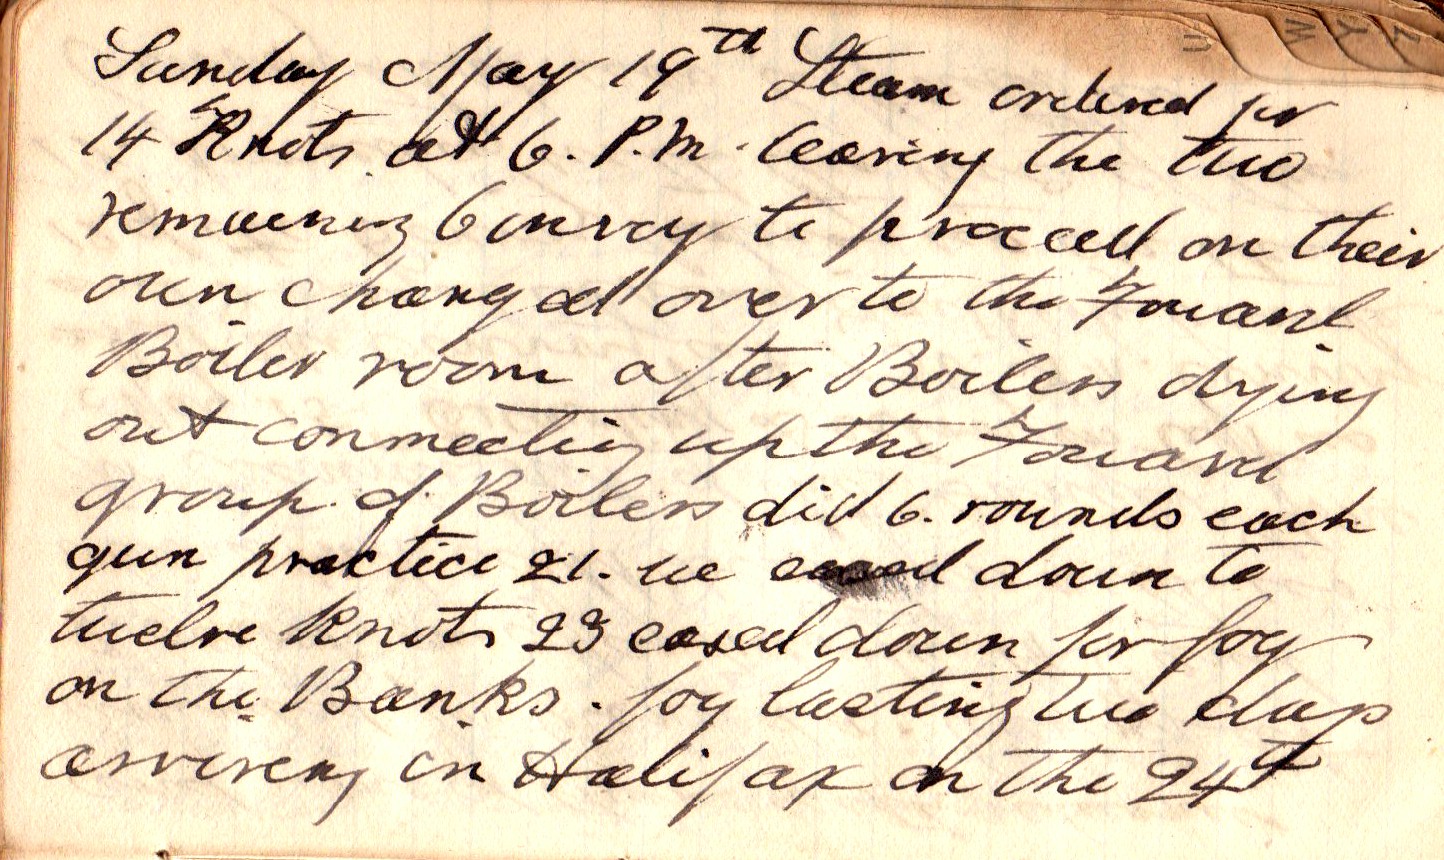 Sunday May 19th Steam ordered for
14 Knots at 6. P.M. leaving the two
remaining Convoy to proceed on their
own changed over to the Foward
Boiler room after Boilers drying
out connecting up the Foward
group of Boilers did 6. rounds each
gun practice 21. we eased down to
twelve knots 23 eased down for fog
on the Banks. fog lasting two days
arriveing in Halifax on the 24th
U W Y Z